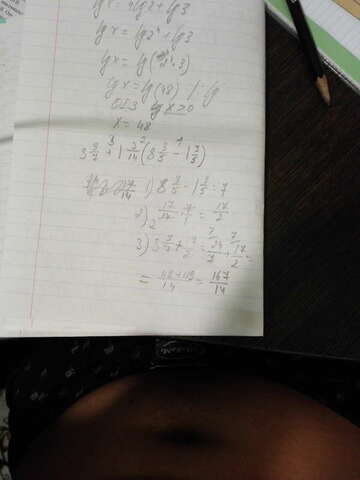 lg x = 4lg2 + lg3
lg x = lg2⁴ + lg3
lg x = lg(2⁴·3)
lg x = lg(48) | :lg
ОДЗ lg x > 0
x = 48
3 3/7 + 1 3/14 (8 3/5 - 1 3/5)
17/14 1) 8 3/5 - 1 3/5 = 7
2) 17/14 · 7/1 = 17/2
3) 3 3/7 + 17/2 = 24/7 + 17/2 =
= 48+119/14 = 167/14